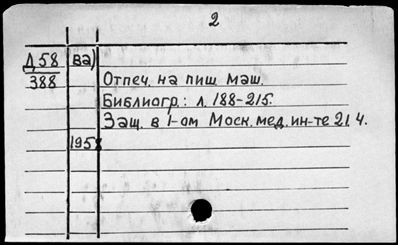 2
Д 58
388
ва)
Отпеч. на пиш. маш.
Библиогр.: л. 188-215.
Защ. в 1-ом Моск. мед. ин-те 21.4.
1958